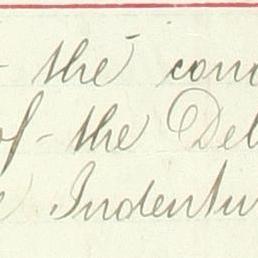 - the cond
of - the Del
e Indentu